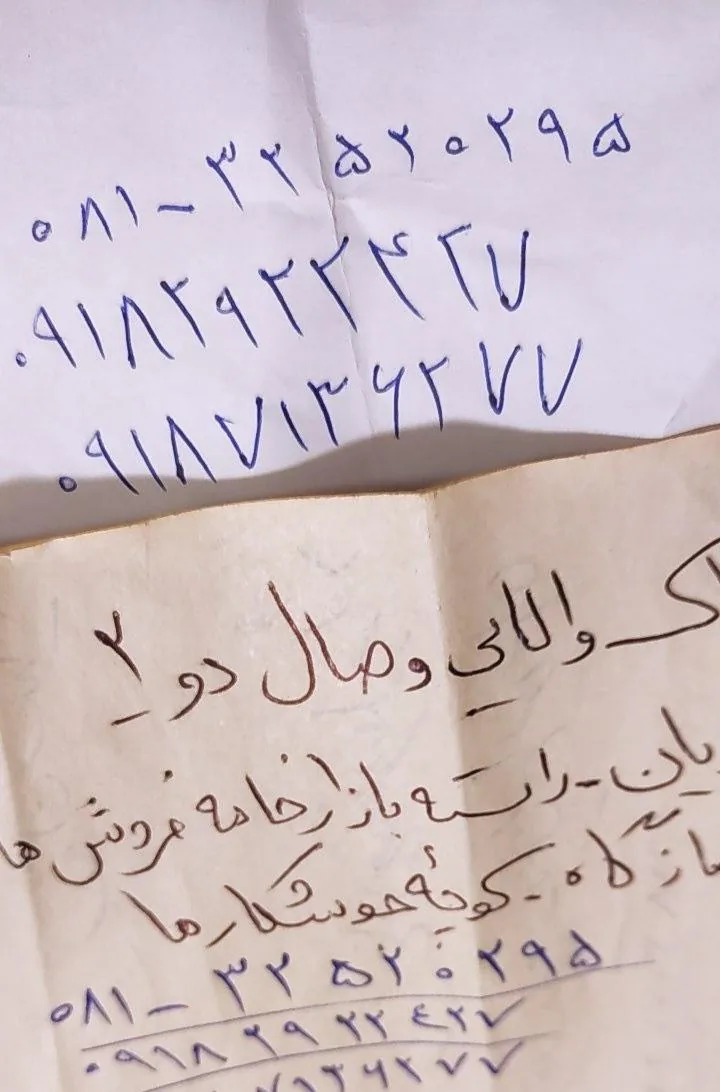 ۰۸۱-۳۲۵۲۰۲۹۵
۰۹۱۸۲۹۲۲۴۲۷
۰۹۱۸۷۱۳۶۲۷۷
والایی وصال دو ۲
راسته بازار خامه فروش ها
کوچهٔ جوشکارها
۰۸۱-۳۲۵۲۰۲۹۵
۰۹۱۸۲۹۲۲۴۲۷
۷۱۳۶۲۷۷